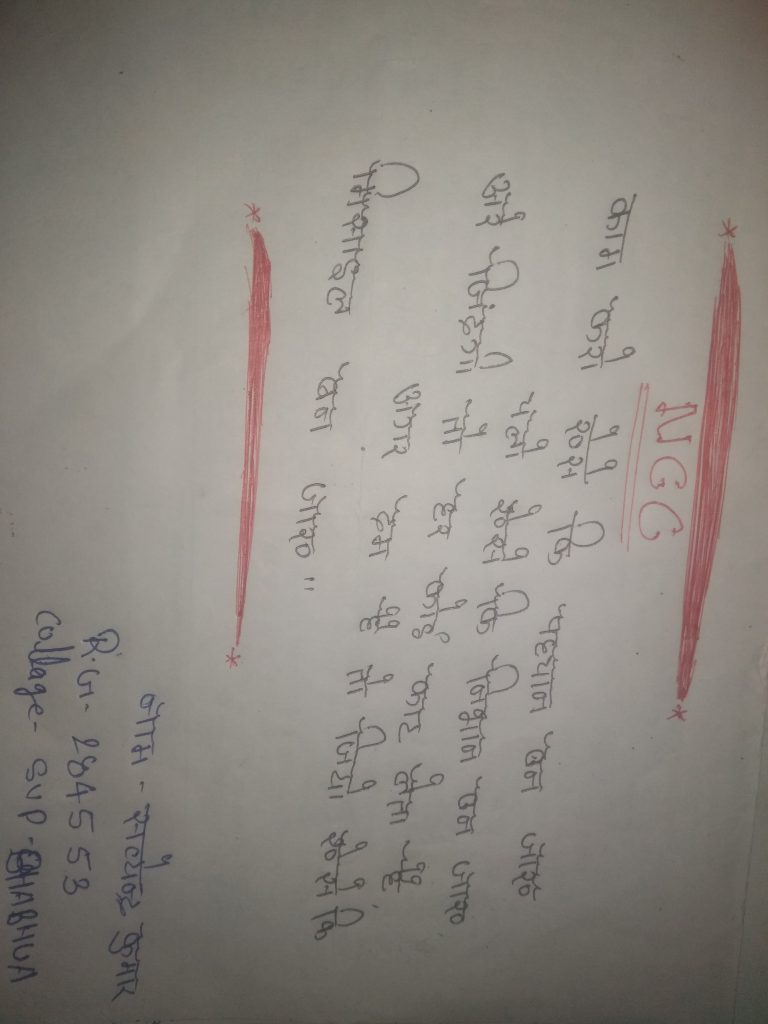 NGC
काम करो ऐसे कि पहचान बन जाए
और जिंदगी चलो ऐसे कि निशान बन जाए
अरे जिंदगी तो हर कोई काट लेता है
अगर दम है तो जियो ऐसे कि
मिशाइल बन जाए "
नाम - सत्येन्द्र कुमार
R.N- 284553
Collage- SVP-BHABHUA